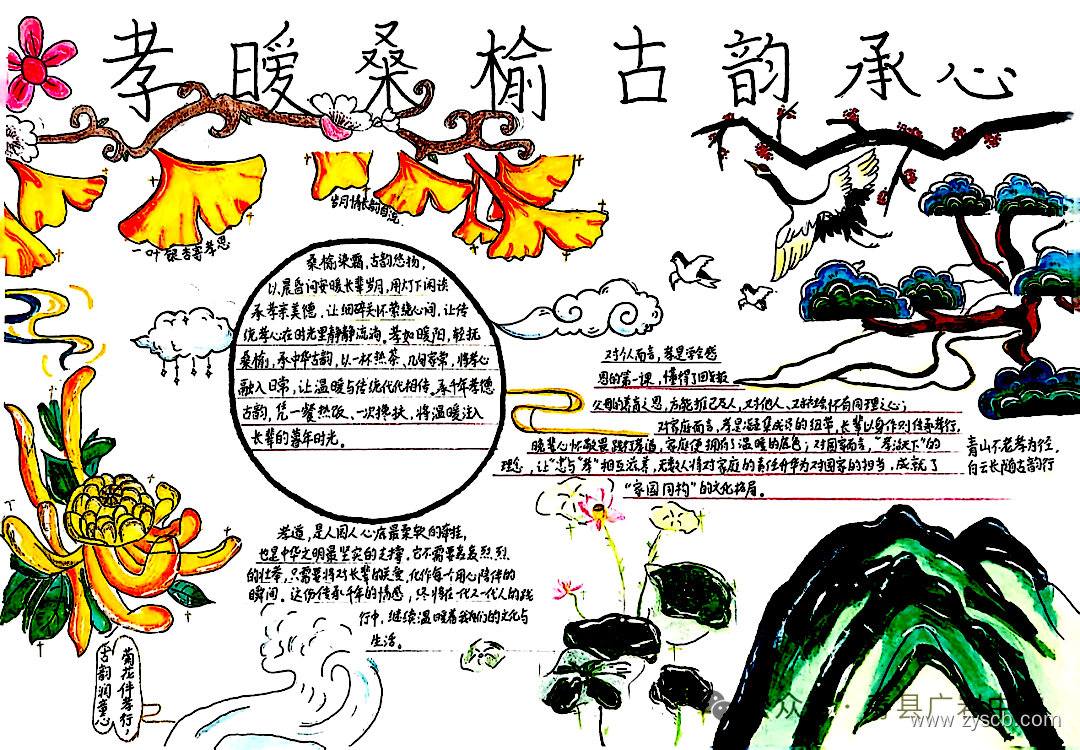 孝暖桑榆 古韵承心
岁月情长韵自流
一叶银杏寄孝思
桑榆染霜,古韵悠扬,
以晨昏问安暖长辈岁月,用灯下闲谈
承孝亲美德,让细碎关怀萦绕心间,让传
统孝心在时光里静静流淌。孝如暖阳,轻抚
桑榆,承中华古韵,以一杯热茶、几句家常,将孝心
融入日常,让温暖与传统代代相传。承千年孝德
古韵,凭一餐热饭、一次搀扶,将温暖注入
长辈的暮年时光。
对个人而言,孝是学会感
恩的第一课,懂得了回报
父母的养育之恩,方能推己及人,对他人、对社会怀有同理之心;
对家庭而言,孝是凝集成员的纽带,长辈以身作则传承孝行,
晚辈心怀敬意践行孝道,家庭便拥有了温暖的底色;对国家而言,“孝治天下”的
理念,让“忠与“孝”相互滋养,无数人将对家庭的责任升华为对国家的担当,成就了
“家国同构”的文化格局。
青山不老孝为径,
白云长随古韵行
孝道,是人间人心底最柔软的牵挂,
也是中华文明最坚实的支撑。它不需要轰轰烈烈
的壮举,只需要将对长辈的关爱,化作每个用心陪伴的
瞬间。这份传承千年的情感,终将在一代又一代人的践
行中,继续温暖着我们的文化与
生活。
菊花伴孝行,
古韵润童心
www.zyscb.com